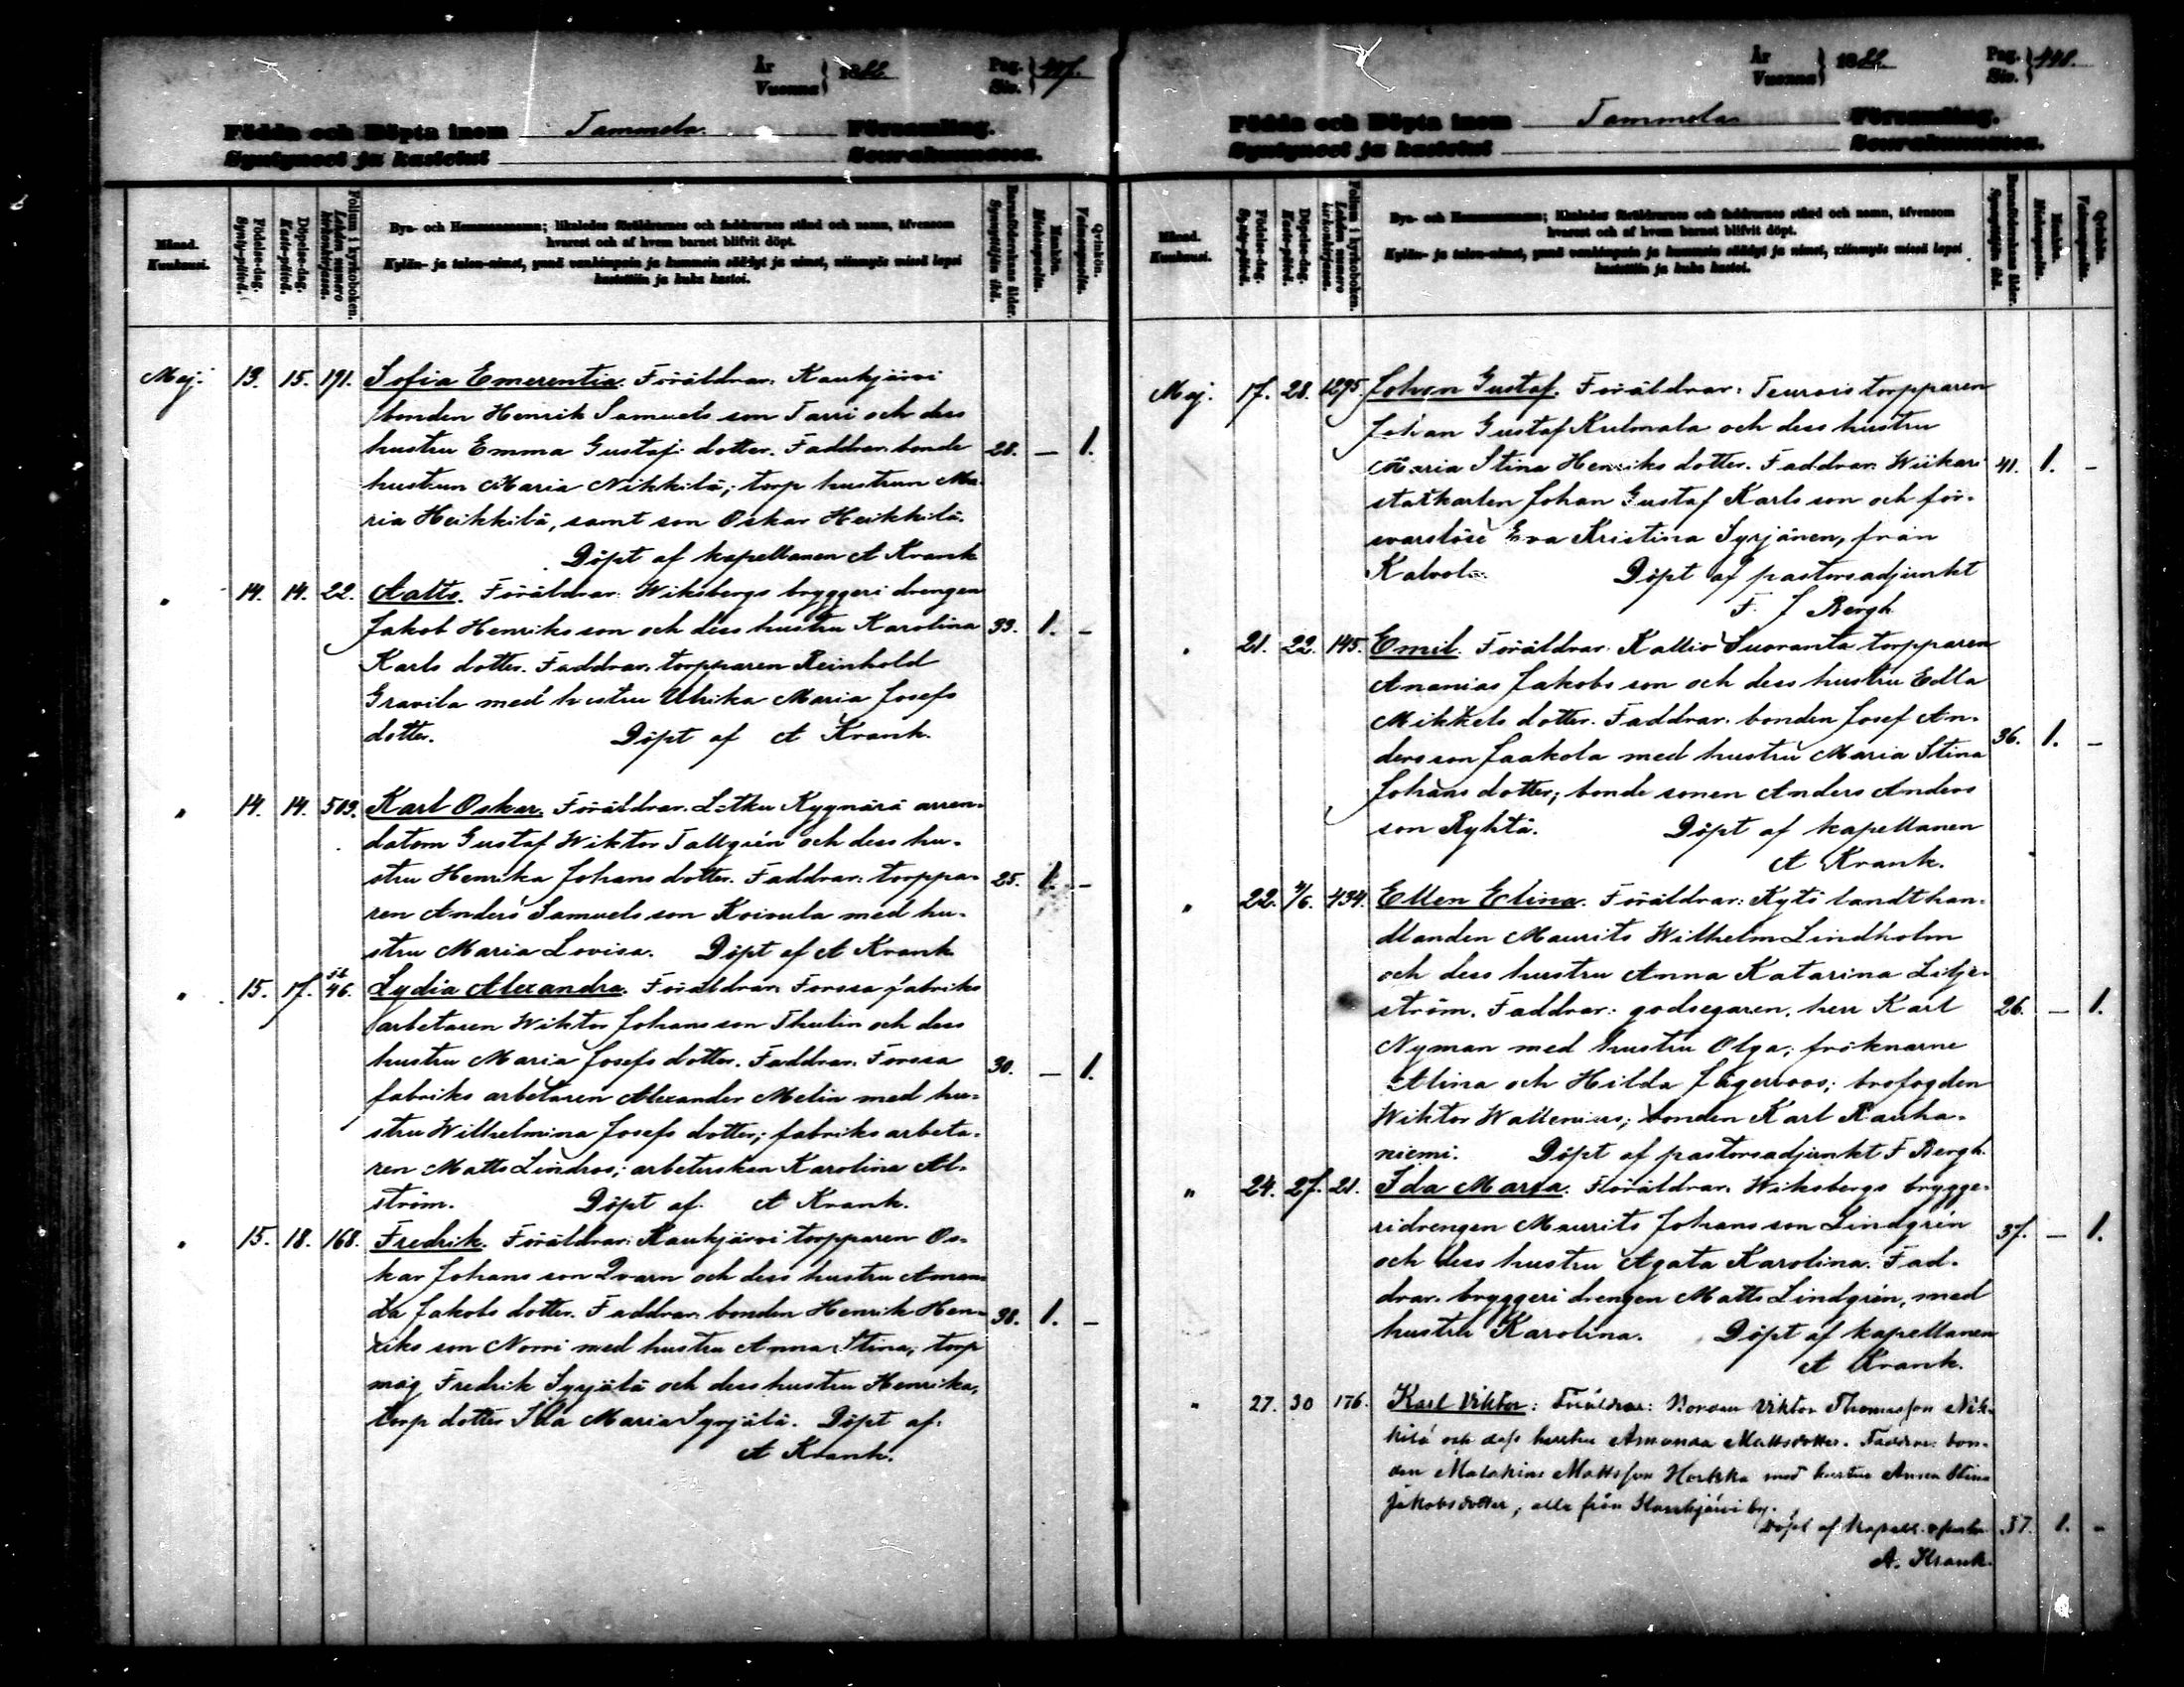 År
Vuonna } 1882. Pag.
Siv. } 447.
Födda och Döpta inom Tammela Församling.
Syntyneet ja kastetut Seurakunnassa.
Månad.
Kuukausi.
Födelse-dag.
Synty-päivä.
Döpelse-dag.
Kaste-päivä.
Folium i kyrkoboken.
Lehden numero
kirkonkirjassa.
Bya- och Hemmansnamn; likaledes föräldrarnes och faddrarnes stånd och namn, äfvensom
hvarest och af hvem barnet blifvit döpt.
Kylän- ja talon-nimet, ynnä vanhimpain ja kummein säädyt ja nimet, niinmyös missä lapsi
kastettiin ja kuka kastoi.
Barnföderskans ålder.
Synnyttäjän ikä.
Mankön.
Miehenpuolia.
Qvinkön.
Vaimonpuolia.
Maj. 13. 15. 191. Sofia Emerentia. Föräldrar: Kaukjärvi
bonden Henrik Samuels son Tarri och dess
hustru Emma Gustafs dotter. Faddrar: bonde 28. — 1.
hustrun Maria Nikkilä; torp hustrun Ma-
ria Heikkilä, samt son Oskar Heikkilä.
Döpt af kapellanen A Krank
" 14. 14. 22. Aalto. Föräldrar: Wiksbergs bryggeri drengen
Jakob Henriks son och dess hustru Karolina 33. 1. –
Karls dotter. Faddrar: torpparen Reinhold
Gravila med hustru Ulrika Maria Josefs
dotter. Döpt af A Krank.
" 14. 14. 503. Karl Oskar. Föräldrar: Letku Kygnärä arren-
datorn Gustaf Wiktor Tallgrén och dess hu-
stru Henrika Johans dotter. Faddrar: torppa- 25. 1. –
ren Anders Samuels son Koivula med hu-
stru Maria Lovisa. Döpt af A Krank
" 15. 17. 46. Lydia Alexandra. Föräldrar: Forssa fabriks
arbetaren Wiktor Johans son Thulin och dess
hustru Maria Josefs dotter. Faddrar: Forssa 30. — 1.
fabriks arbetaren Alexander Melin med hu-
stru Wilhelmina Josefs dotter; fabriks arbeta-
ren Matts Lindros; arbeterskan Karolina Al-
ström. Döpt af A Krank.
" 15. 18. 168. Fredrik. Föräldrar: Kaukjärvi torpparen Os-
kar Johans son Qvarn och dess hustru Aman-
da Jakobs dotter. Faddrar: bonden Henrik Hen- 38. 1. –
riks son Norri med hustru Anna Stina; torp
måg Fredrik Syrjälä och dess hustru Henrika,
torp dotter Ida Maria Syrjälä. Döpt af
A Krank.
År
Vuonna } 1882. Pag.
Siv. } 448.
Födda och Döpta inom Tammela Församling.
Syntyneet ja kastetut Seurakunnassa.
Månad.
Kuukausi.
Födelse-dag.
Synty-päivä.
Döpelse-dag.
Kaste-päivä.
Folium i kyrkoboken.
Lehden numero
kirkonkirjassa.
Bya- och Hemmansnamn; likaledes föräldrarnes och faddrarnes stånd och namn, äfvensom
hvarest och af hvem barnet blifvit döpt.
Kylän- ja talon-nimet, ynnä vanhimpain ja kummein säädyt ja nimet, niinmyös missä lapsi
kastettiin ja kuka kastoi.
Barnföderskans ålder.
Synnyttäjän ikä.
Mankön.
Miehenpuolia.
Qvinkön.
Vaimonpuolia.
Maj. 17. 28. 1295. Johan Gustaf. Föräldrar: Teurois torpparen
Johan Gustaf Kulmala och dess hustru
Maria Stina Henriks dotter. Faddrar: Wiikari 41. 1. –
statkarlen Johan Gustaf Karls son och för-
svarslöse Eva Kristina Syrjänen, från
Kalvola. Döpt af pastorsadjunkt
F. J Bergh
" 21. 22. 145. Emil. Föräldrar: Kallio Suoranta torpparen
Ananias Jakobs son och dess hustru Edla
Mikkels dotter. Faddrar: bonden Josef An-
ders son Jaakola med hustru Maria Stina 36. 1. –
Johans dotter; bonde sonen Anders Anders
son Ryhtä. Döpt af kapellanen
A Krank.
" 22. 4/6. 434. Ellen Elina. Föräldrar: Kytö landthan-
dlanden Maurits Wilhelm Lindholm
och dess hustru Anna Katarina Lilje-
ström. Faddrar: godsegaren, herr Karl 26. — 1.
Nyman med hustru Olga; fröknarne
Alina och Hilda Jägerroos; brofogden
Wiktor Wallenius; bonden Karl Rauha-
niemi. Döpt af pastorsadjunkt F Bergh.
" 24. 27. 21. Ida Maria. Föräldrar: Wiksbergs brygge-
ridrengen Maurits Johans son Lindgrén 37. — 1.
och dess hustru Agata Karolina. Fad-
drar: bryggeri drengen Matts Lindgrén, med
hustru Karolina. Döpt af kapellanen
A Krank.
" 27. 30 176. Karl Viktor: Föräldrar: Bonden Viktor Thomasson Nik-
kilä och dess hustru Amanda Mattsdotter. Faddrar: bon-
den Malakias Mattsson Horkka med hustru Anna Stina
Jakobsdotter, alla från Kaukjärvi by.
Döpt af kapell. 37. 1. –
A. Krank.